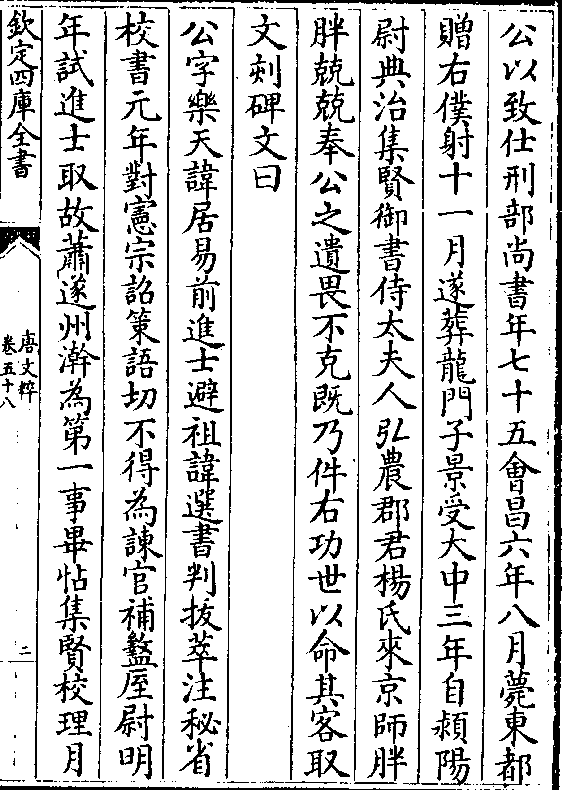 公以致仕刑部尚書年七十五會昌六年八月薨東都
贈右僕射十一月遂葬龍門子景受大中三年自潁陽
尉典治集賢御書侍太夫人弘農郡君楊氏來京師胖
胖兢兢奉公之遺畏不克既乃件右功世以命其客取
文刻碑文曰
公字樂天諱居易前進士避祖諱選書判拔萃注秘省
校書元年對憲宗詔策語切不得為諫官補盩厔尉明
年試進士取故蕭遂州澣為第一事畢帖集賢校理月
欽定四庫全書
唐文粹
卷五十八
二